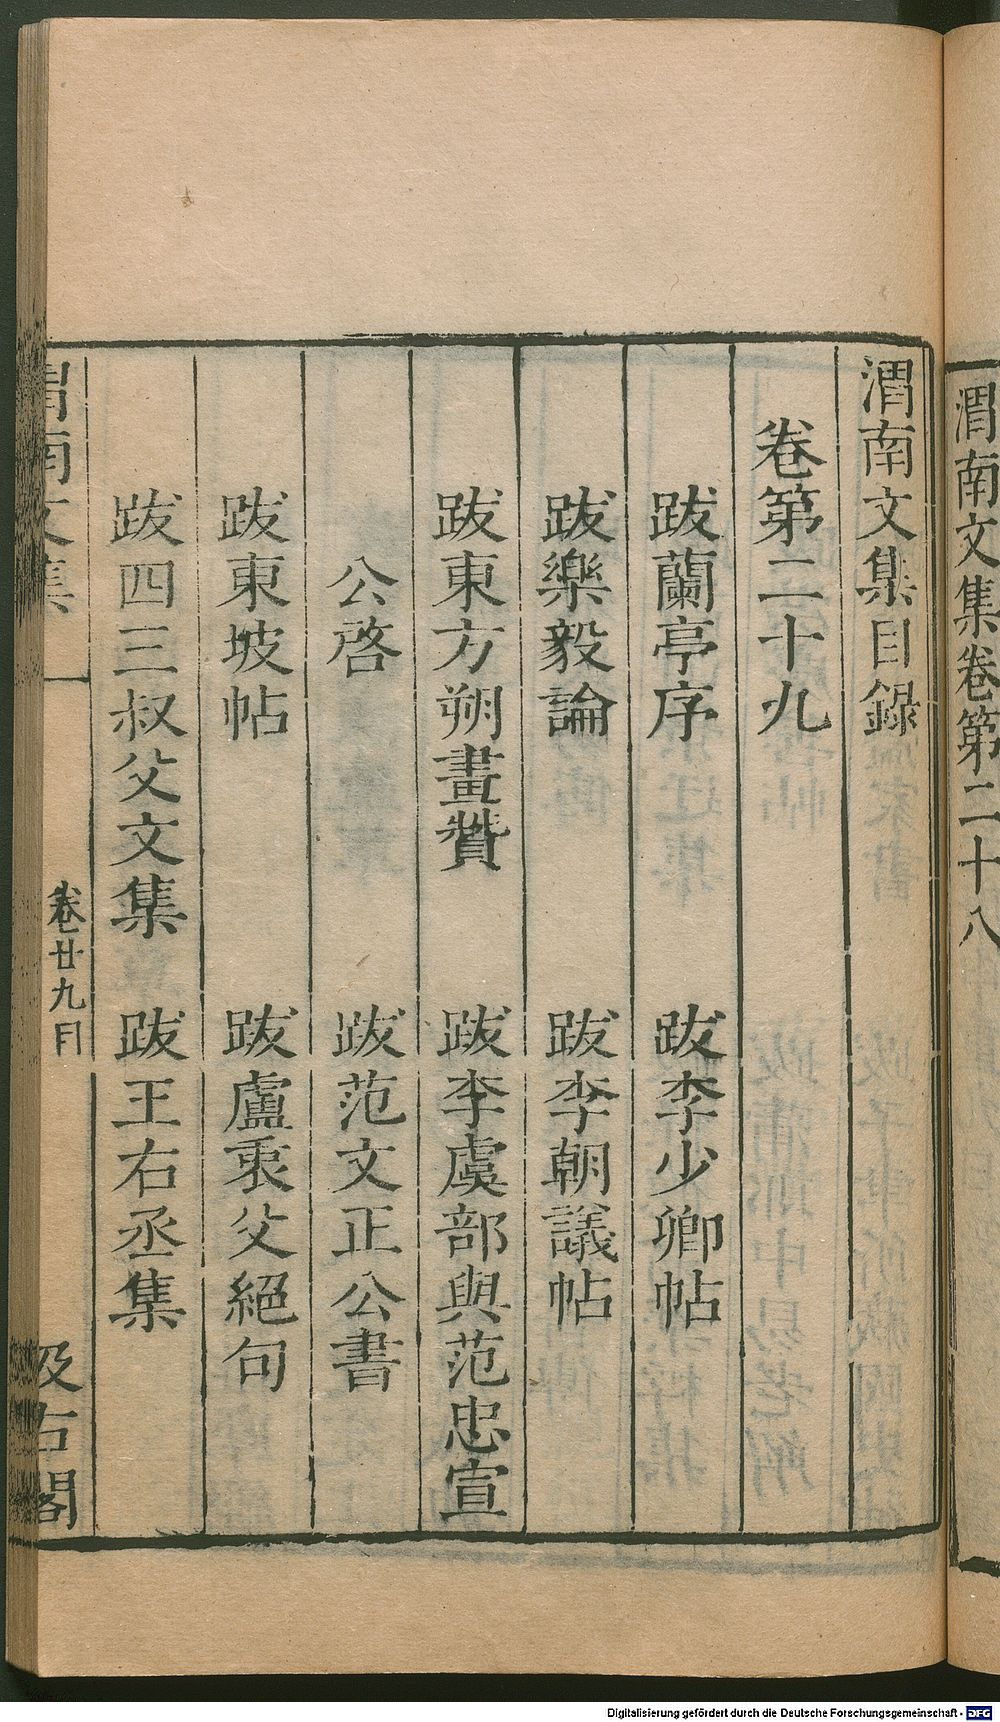 渭南文集卷第二十八
渭南文集目錄
卷第二十九
跋蘭亭序 跋李少卿帖
跋樂毅論 跋李朝議帖
跋東方朔畫贊 跋李虞部與范忠宣
公啓 跋范文正公書
跋東坡帖 跋盧裵父絕句
跋四三叔父文集 跋王右丞集
渭南文集 卷廿九目 汲古閣
Digitalisierung gefördert durch die Deutsche Forschungsgemeinschaft - DFG